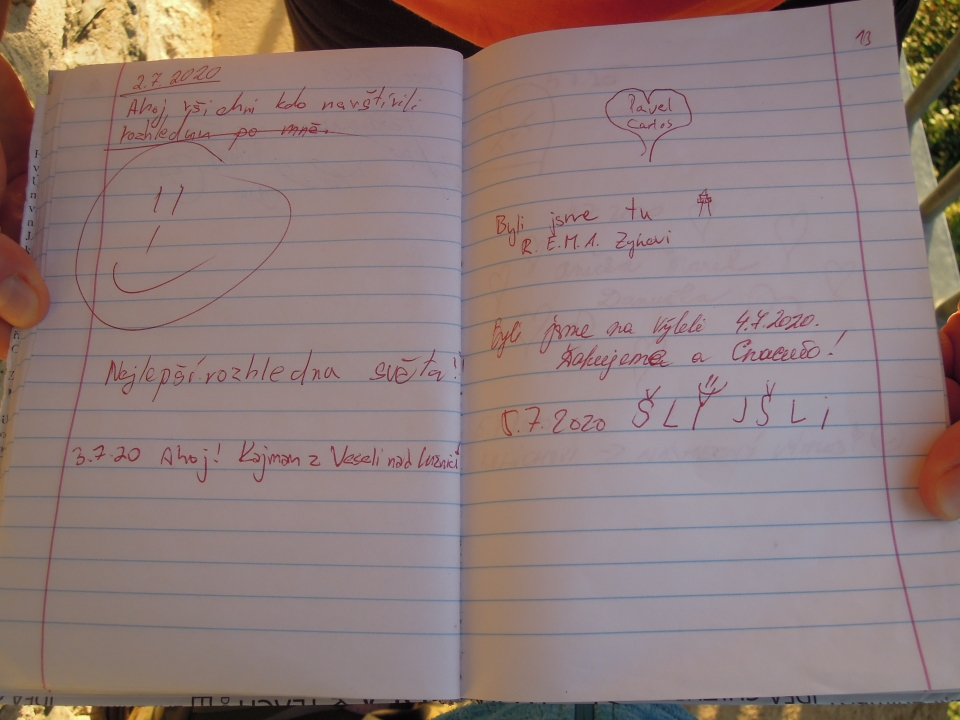 2.7.2020
Ahoj všichni kdo navštívili
rozhlednu po mně.
Nejlepší rozhledna světa!
3.7.20 Ahoj! Kajman z Veselí nad Lužnicí
13
Pavel
Carlos
Byli jsme tu
R. E. M. A. Zykovi
Byli jsme na výletě 4.7.2020.
Ďakujeme a Спасибо!
5.7.2020 ŠLI JŠLi